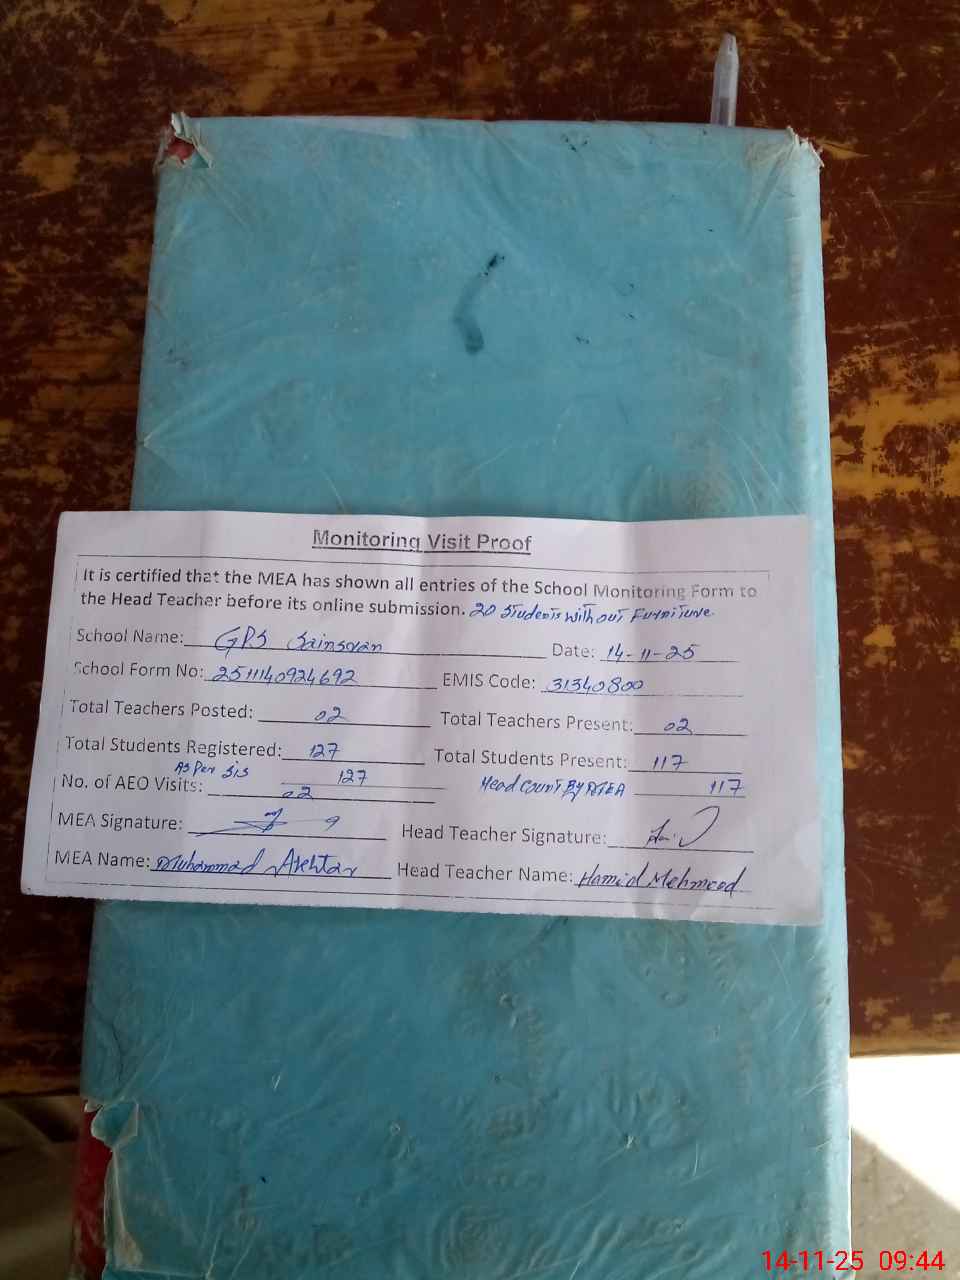 Monitoring Visit Proof
It is certified that the MEA has shown all entries of the School Monitoring Form to
the Head Teacher before its online submission. 20 Students without Furniture.
School Name: GPS Date: 14-11-25
School Form No: 2511140924692 EMIS Code: 31340800
Total Teachers Posted: 02 Total Teachers Present: 02
Total Students Registered: 127 Total Students Present: 117
As Per SIS 127 Head Count By MEA 117
No. of AEO Visits: 02
MEA Signature: Head Teacher Signature:
MEA Name: Muhammad Akhtar Head Teacher Name: Hamid Mehmood
14-11-25 09:44